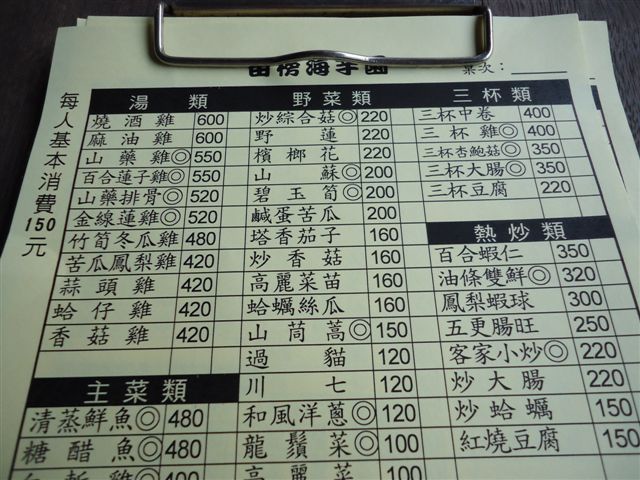 苗榜海芋園
桌次：
每人基本消費150元
湯類
燒酒雞 600
麻油雞 600
山藥雞◎ 550
百合蓮子雞◎ 550
山藥排骨◎ 520
金線蓮雞◎ 520
竹筍冬瓜雞 480
苦瓜鳳梨雞 420
蒜頭雞 420
蛤仔雞 420
香菇雞 420
主菜類
清蒸鮮魚◎ 480
糖醋魚◎ 480
野菜類
炒綜合菇◎ 220
野蓮 220
檳榔花 220
山蘇◎ 200
碧玉筍◎ 200
鹹蛋苦瓜 200
塔香茄子 160
炒香菇 160
高麗菜苗 160
蛤蠣絲瓜 160
山茼蒿◎ 150
過貓 120
川七 120
和風洋蔥◎ 120
龍鬚菜◎ 100
高麗菜 100
三杯類
三杯中卷 400
三杯雞◎ 400
三杯杏鮑菇◎ 350
三杯大腸◎ 350
三杯豆腐 220
熱炒類
百合蝦仁 350
油條雙鮮◎ 320
鳳梨蝦球 300
五更腸旺 250
客家小炒◎ 220
炒大腸 220
炒蛤蠣 150
紅燒豆腐 150